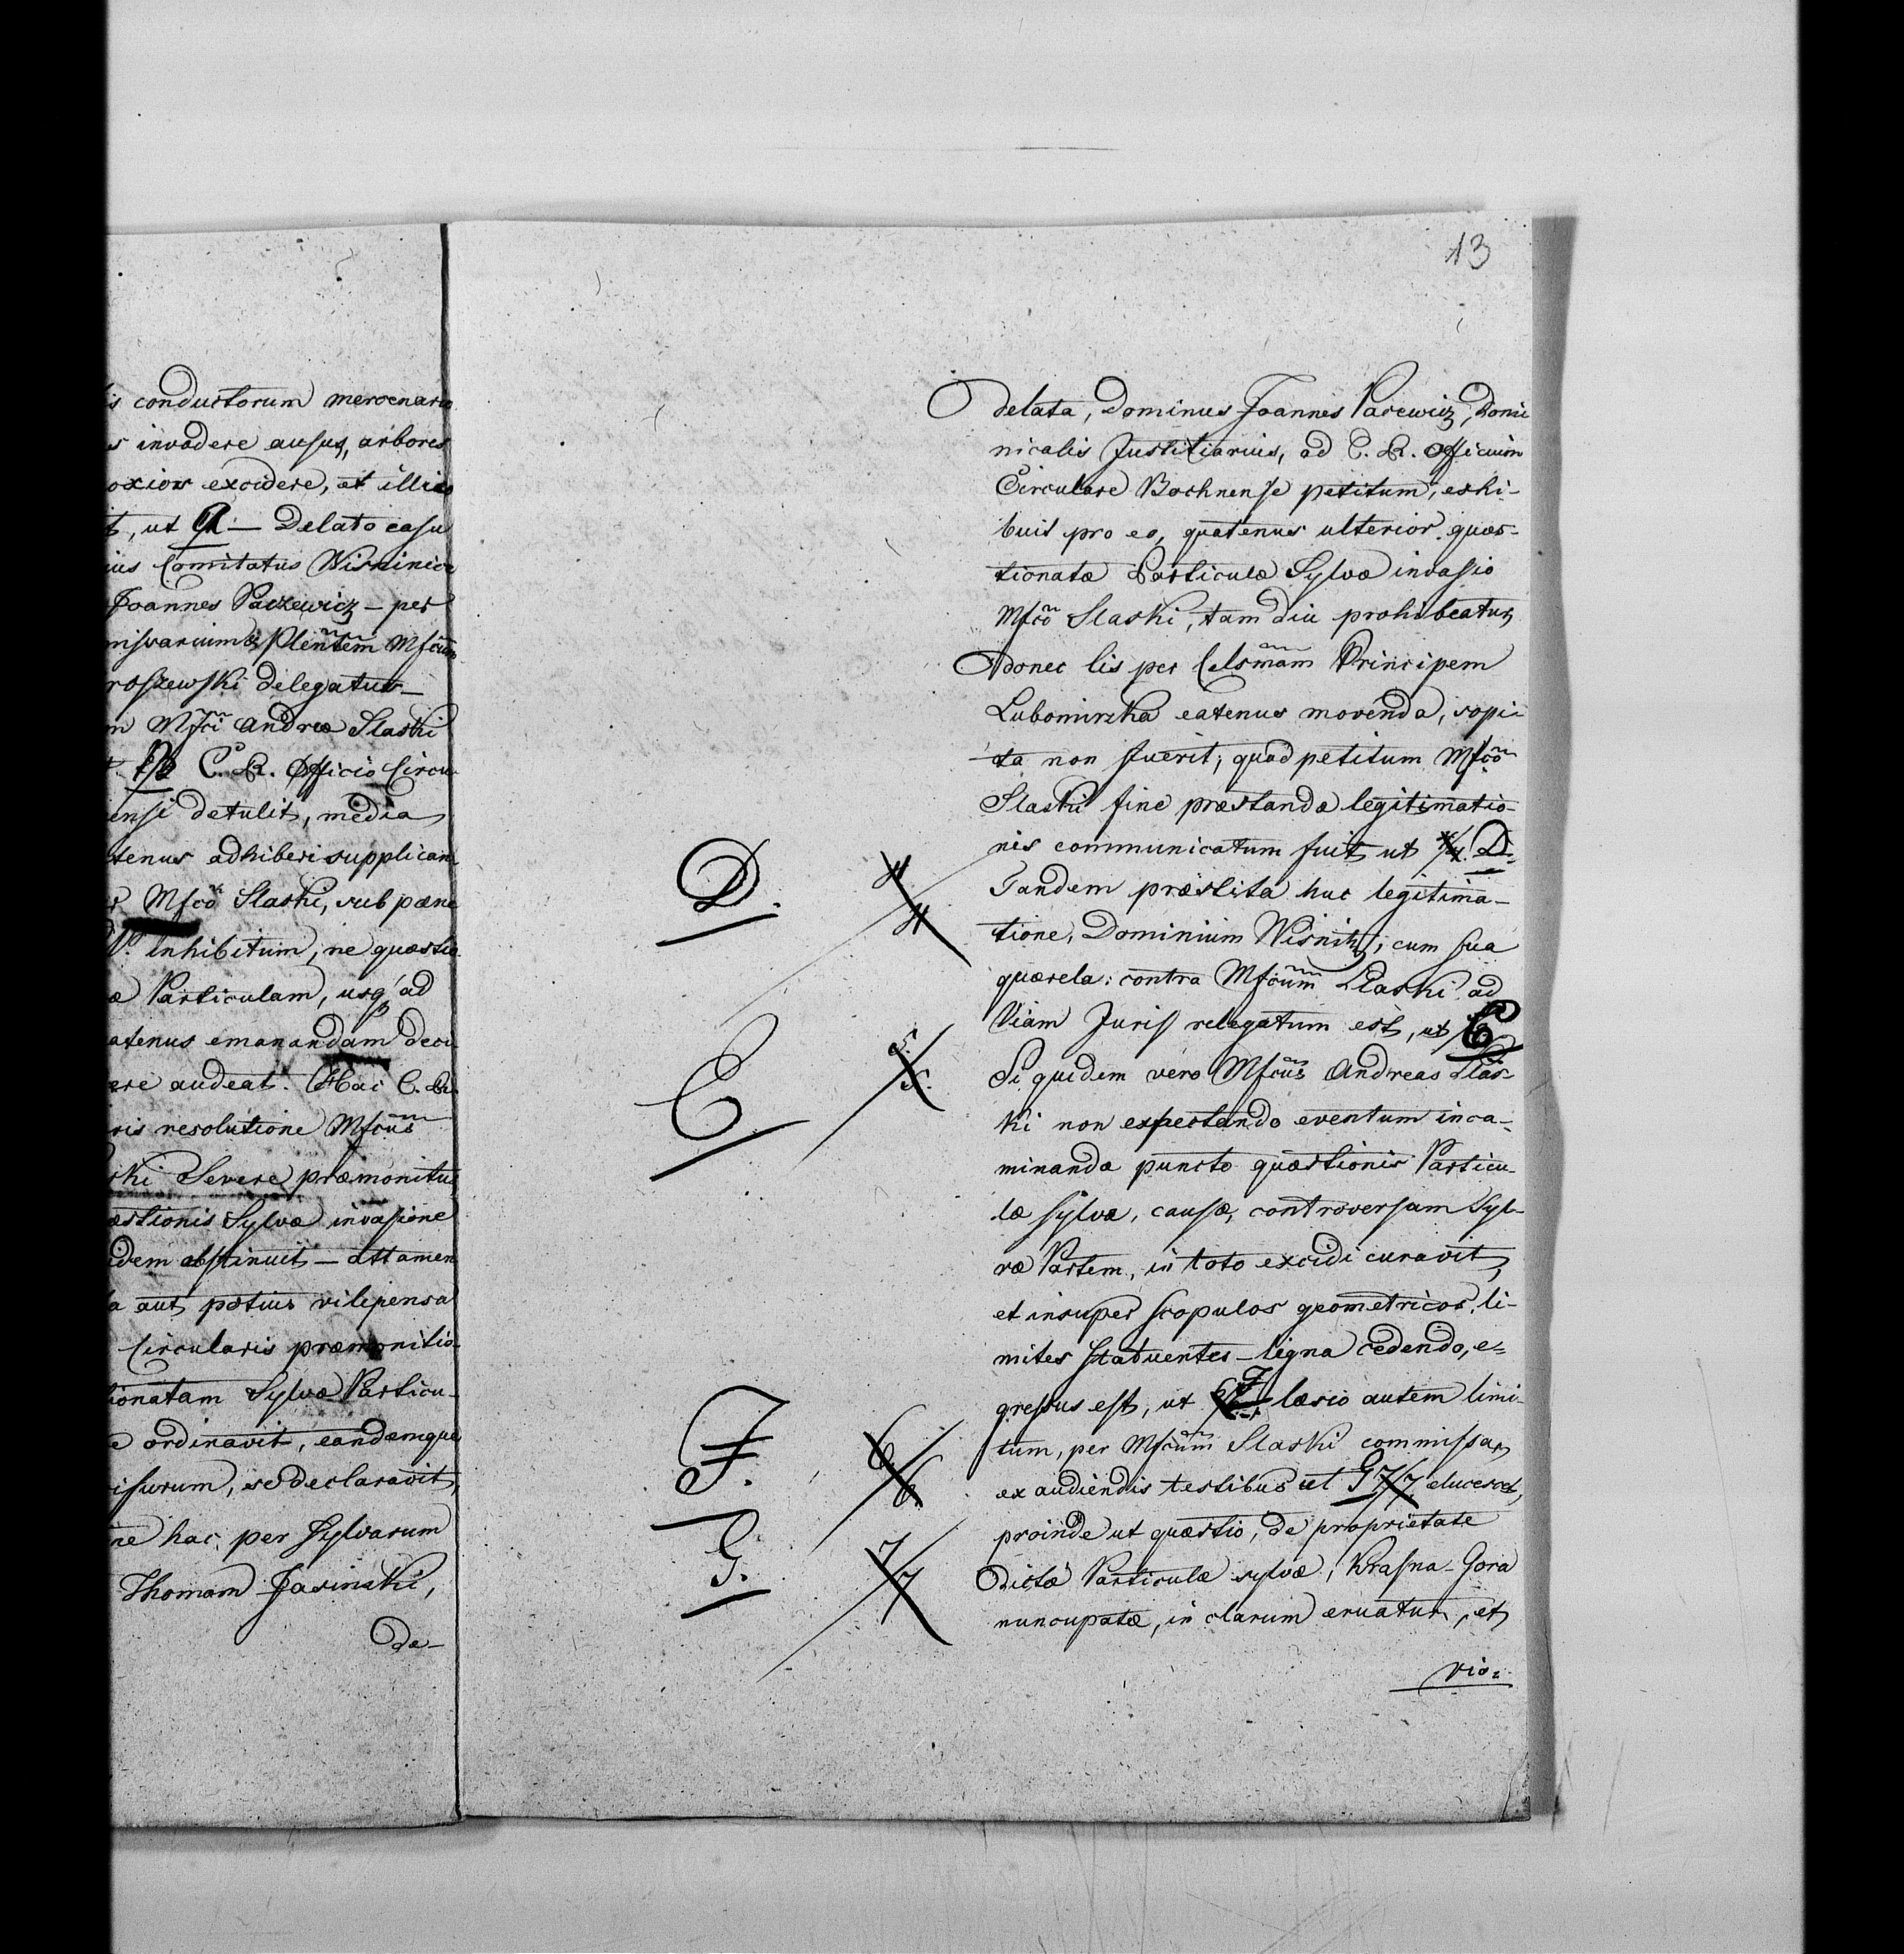 is conductorum mercenario
s invadere ausus, arbores
oxios excidere, et illico
t, ut A. — Delato casu
ius Comitatus Wisnicz
Joannes Paczewicz — per
missarium & Plentem Mfcum
roszewski delegatus —
m Mfci Andreæ Slaski
C. R. Officio Circu-
ensi detulit, media
tenus adhiberi supplican
Mfco Slaski, sub pæna
inhibitum, ne quæstio
æ Particulam, usq ad
atenus emanandam deci
ere audeat. Hac C. R.
ris resolutione Mfcus
ski Severe præmonitus
æstionis Sylvæ invasione
idem abstinuit — attamen
a aut potius vilipensa
Circularis præmonitio-
ionatam Sylvæ Particu-
e ordinavit, eandemque
isurum, se declaravit,
ne hac, per Sylvarum
Thomam Jasinski,
de-
13
delata, Dominus Joannes Pacewicz, Domi
nicalis Justitiarius, ad C. R. Officium
Circulare Bochnense petitum, exhi-
buit pro eo, quatenus ulterior quæs-
tionatæ Particulæ Sylvæ invasio
Mfco Slaski, tam diu prohibeatur,
donec lis per Celsmam Principem
Lubomirska eatenus movenda, sopi-
ta non fuerit; quod petitum Mfco
Slaski fine præstandæ legitimatio-
nis communicatum fuit ut 4/4. D.
Tandem præstita huc legitima-
tione, Dominium Wisnitz, cum sua
quærela contra Mfcum Slaski ad
Viam Juris relegatum est, ut E
Si quidem vero Mfcus Andreas Slas-
ki non expectando eventum inca-
minandæ puncto quæstionis Particu-
læ sylvæ, causæ, controversam Syl-
væ Partem, in toto excidi curavit,
et insuper scopulos geometricos, li-
mites statuentes — ligna cedendo, e-
gressus est, ut F læsio autem limi-
tum, per Mfcum Slaski commissa,
ex audiendis testibus ut G 7/7 elucescet,
proinde ut quæstio, de proprietate
dictæ Particulæ sylvæ, Krasna-Gora
nuncupatæ, in clarum eruatur, et
vio-
D. 4/4
E 5./5.
F. 6/6
G. 7/7